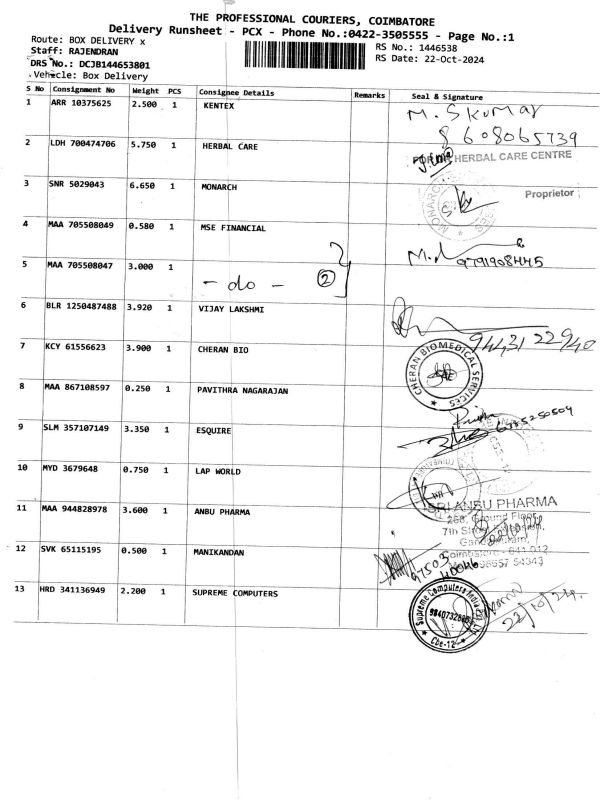 THE PROFESSIONAL COURIERS, COIMBATORE
Delivery Runsheet - PCX - Phone No.:0422-3505555 - Page No.:1
Route: BOX DELIVERY x
RS No.: 1446538
Staff: RAJENDRAN
RS Date: 22-Oct-2024
DRS No.: DCJB144653801
Vehicle: Box Delivery
S No Consignment No Weight PCS Consignee Details Remarks Seal & Signature
1 ARR 10375625 2.500 1 KENTEX M. S Kumar
8608065739
2 LDH 700474706 5.750 1 HERBAL CARE
FOR HERBAL CARE CENTRE
3 SNR 5029043 6.650 1 MONARCH
Proprietor
4 MAA 705508049 0.580 1 MSE FINANCIAL
9791908445
5 MAA 705508047 3.000 1
- do - 2
6 BLR 1250487488 3.920 1 VIJAY LAKSHMI
7 KCY 61556623 3.900 1 CHERAN BIO
CHERAN BIOMEDICAL SERVICES
8 MAA 867108597 0.250 1 PAVITHRA NAGARAJAN
9 SLM 357107149 3.350 1 ESQUIRE
10 MYD 3679648 0.750 1 LAP WORLD
11 MAA 944828978 3.600 1 ANBU PHARMA
SRI ANBU PHARMA
268, Ground Floor,
7th
Coimbatore - 641 012
12 SVK 65115195 0.500 1 MANIKANDAN
97503
40046
98657 54343
13 HRD 341136949 2.200 1 SUPREME COMPUTERS
Supreme Computers India
Cbe-12
22/10/24